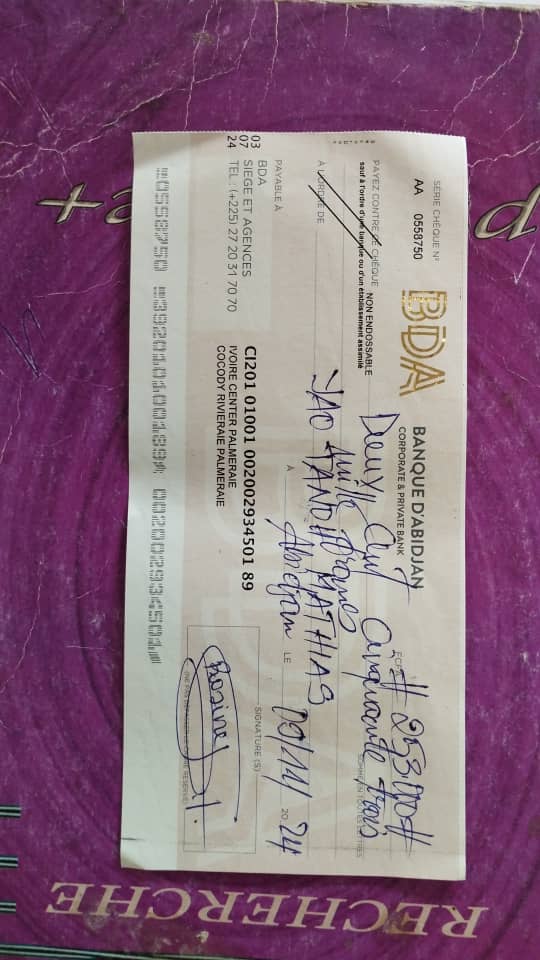 SERIE CHÈQUE N°
AA 0558750
BDA
BANQUE D'ABIDJAN
CORPORATE & PRIVATE BANK
FCFA # 253.000 #
PAYEZ CONTRE CE CHÈQUE NON ENDOSSABLE
sauf à l'ordre d'une banque ou d'un établissement assimilé
Deux Cent Cinquante trois
SOMME EN TOUTES LETTRES
mille francs
À L'ORDRE DE YAO MATHIAS
PAYABLE À
À Abidjan LE /11/ 20 24
03
07
24
BDA
SIEGE ET AGENCES
TEL : (+225) 27 20 31 70 70
CI201 01001 002002934501 89
IVOIRE CENTER PALMERAIE
COCODY RIVIERAIE PALMERAIE
SIGNATURE (S)
0558750 392010100189 002002934501
RECHERCHE